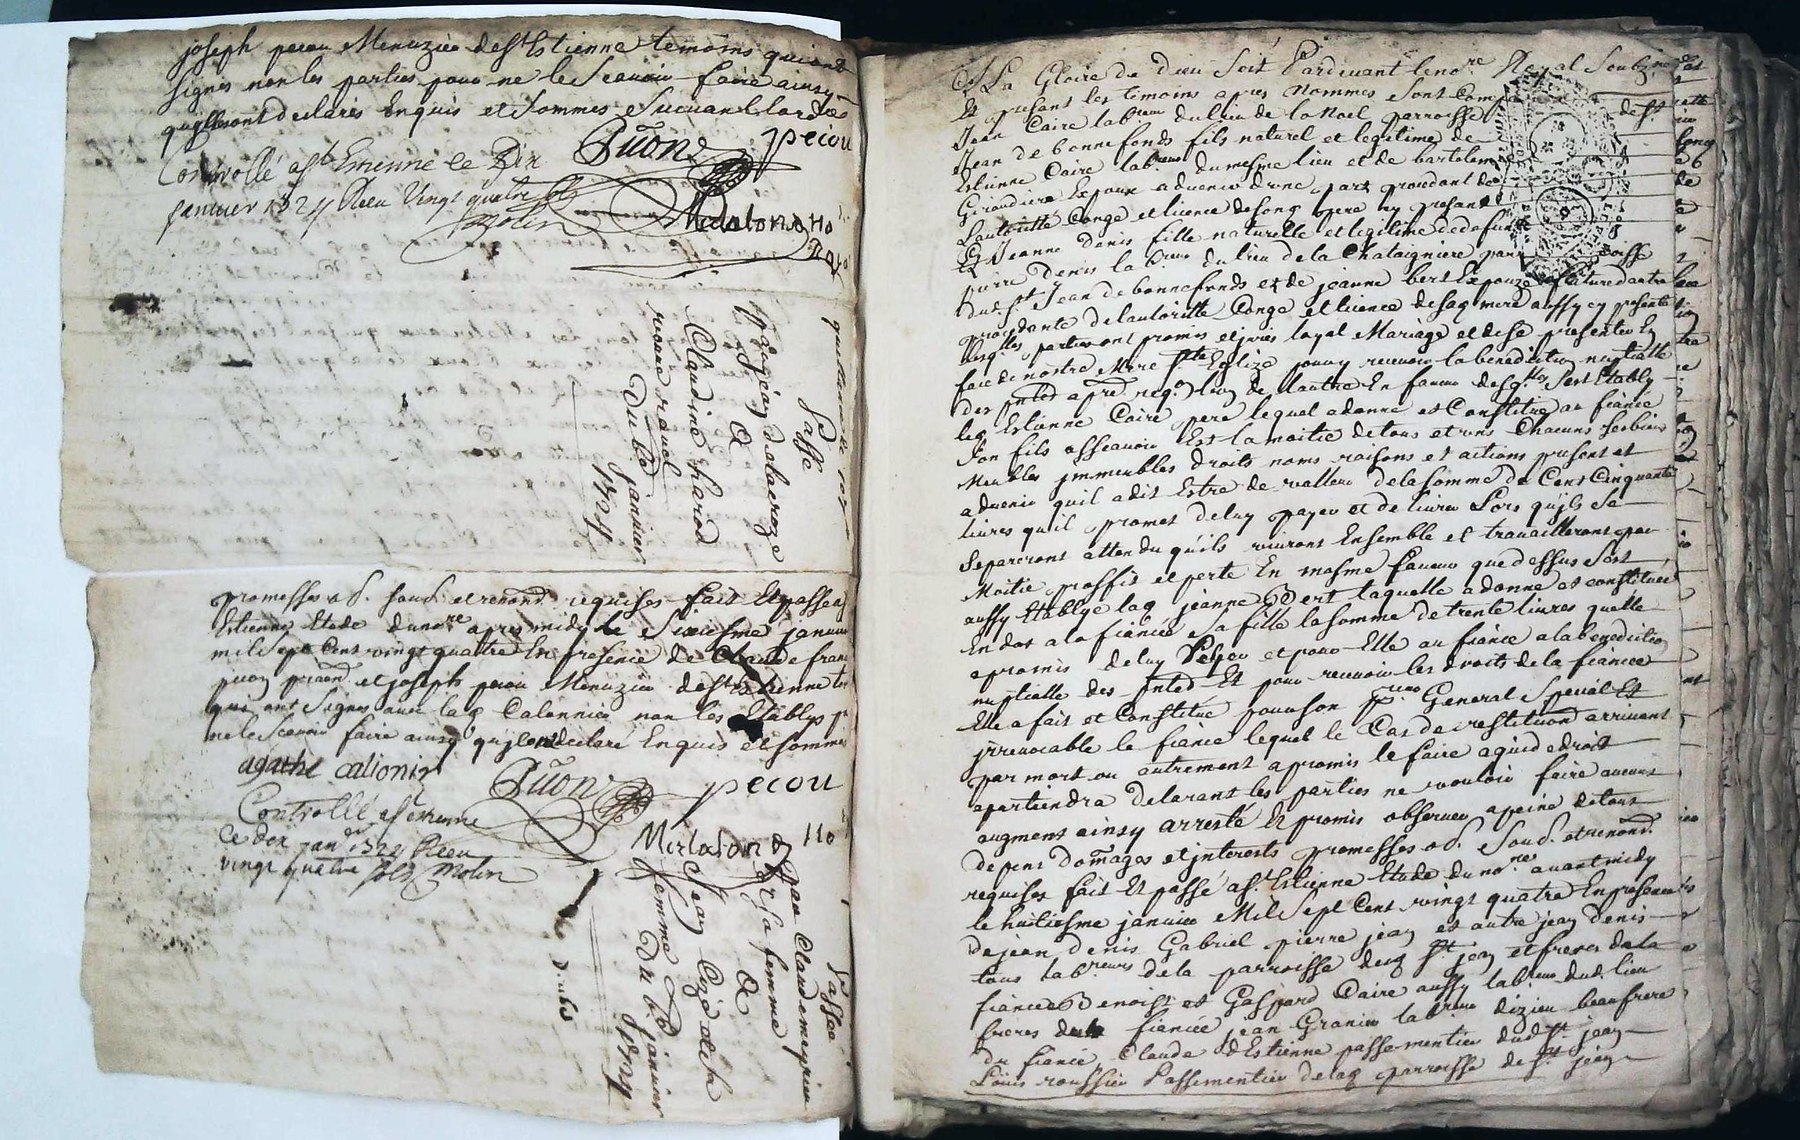 joseph pecou Menuzier de st Estienne temoins qui ont
signés non les parties pour ne le scavoir faire ainsy
quilsont declarés Enquis et sommes suivant lord
Buon pecou
Controllé a st Etienne ce Dix
janvier 1724 Receu Vingt quatre sols
Molin
Merlalon no
Roy
quittance
passé
par jean dalaeroze
&
Claudine harod
vesve ravel
Du 6e janvier
1724
promesses ob. soub. et renond. requises fait Et passé a st
Estienne Etude du nore apres midy Le Sixiesme janvier
mil sept Cent vingt quatre En presence de Claude francois
buon et joseph pecou Menuzier de st Estienne tem
qui ont signés avec laq Calonnier non les Establys p
ne le scavoir faire ainsy quilont declaré Enquis et sommes
agathe calionir
Buon pecou
Controllé a st etienne
ce dix janr 1724 Receu
vingt quatre sols Molin
Merlalon no
Passée
par Claude meyrieu
& sa femme
&
Jean
femme
Du 6e janvier
1724
A La Gloire de dieu soit Pardevant le nore Royal soubsigné
Et presant les temoins apres nommes sont comp
Jean Caire labreur du lieu de la Noel parroisse de st
Jean de bonnefonds fils naturel et legitime de
Estienne Caire labreur du mesme lieu et de bartolem
Girodiere Espoux advenir d'une part procedant de
Lautorite Conge et licence de sonq pere icy presant
Et Jeanne denis fille naturelle et legitime de defunt
pierre denis labreur du lieu de la Chataigniere parroisse
dud st Jean de bonnefonds et de jeanne bert Espouze future dautre
procedante de lautorite Conge et licence de saq mere aussy cy presente
lesqlles parties ont promis et jures loyal Mariage et de se presenter En
face de nostre Mere ste Eglize pour y recevoir la benediction nuptialle
des lun de lautre En faveur desqlles sest Etably
leq Estienne Caire pere lequel a donne et Constitue au fiance
son fils asseavoir Est la moitie de tous et uns Chacuns ses biens
Meubles immeubles droits noms raisons et actions presant et
advenir quil a dit Estre de valleur de la somme de Cent Cinquante
livres quil promet de luy payer et delivrer Lors quils se
separeront attendu quils vivront Ensemble et travailleront par
Moitie proffit et perte En mesme faveur que dessus sest
aussy Etablye laq jeanne Bert laquelle a donne et constitue
En dot a la fiancée sa fille la somme de trente livres quelle
a promis de luy Payer et pour Elle au fiance a la benediction
nuptialle des Et pour recevoir les droits de la fiancée
Elle a fait et Constitue pour son General Special Et
irrevocable le fiance lequel le Cas de restitution arrivant
par mort ou autrement a promis le faire a qui de droit
apartiendra declarant les parties ne vouloir faire aucuns
augment ainsy arresté Et promis observer a peine de tous
depens domages et interests promesses ob. soub. et renond.
requises fait Et passé a st Estienne Etude du nore avant midy
le huitiesme janvier Mil Sept Cent vingt quatre En presence
de jean denis Gabriel pierre jean et autre jean denis
tous labreurs de la parroisse dud st jean et freres de la
fiancée Benoist et Gaspard Caire aussy labreur dud. lieu
freres du fiancée jean Granier labreur dizieu beaufrere
du fiance Claude dEstienne passementier dud st jean
Louis roussier Passementier de laq parroisse de st jean